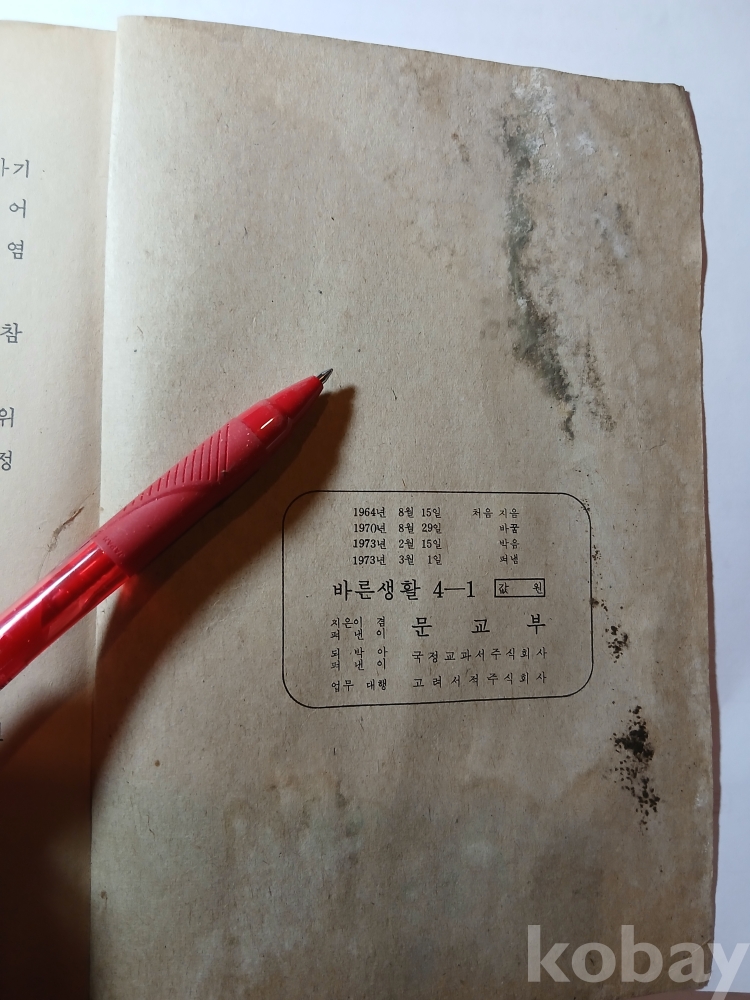 기
어
염
참
위
정
1964년 8월 15일 처음 지음
1970년 8월 29일 바꿈
1973년 2월 15일 박음
1973년 3월 1일 펴냄
바른생활 4—1 값 원
지은이 겸
펴 낸 이
문 교 부
되 박 아
펴 낸 이
국정교과서주식회사
업무 대행 고려서적주식회사
kobay